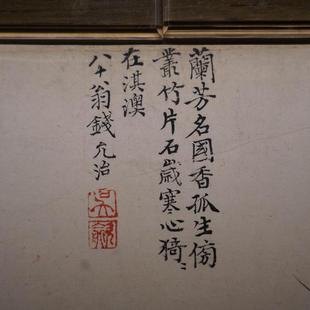 蘭芳名國香孤生傍
叢竹片石歲寒心猗〻
在淇澳
八十翁錢允治